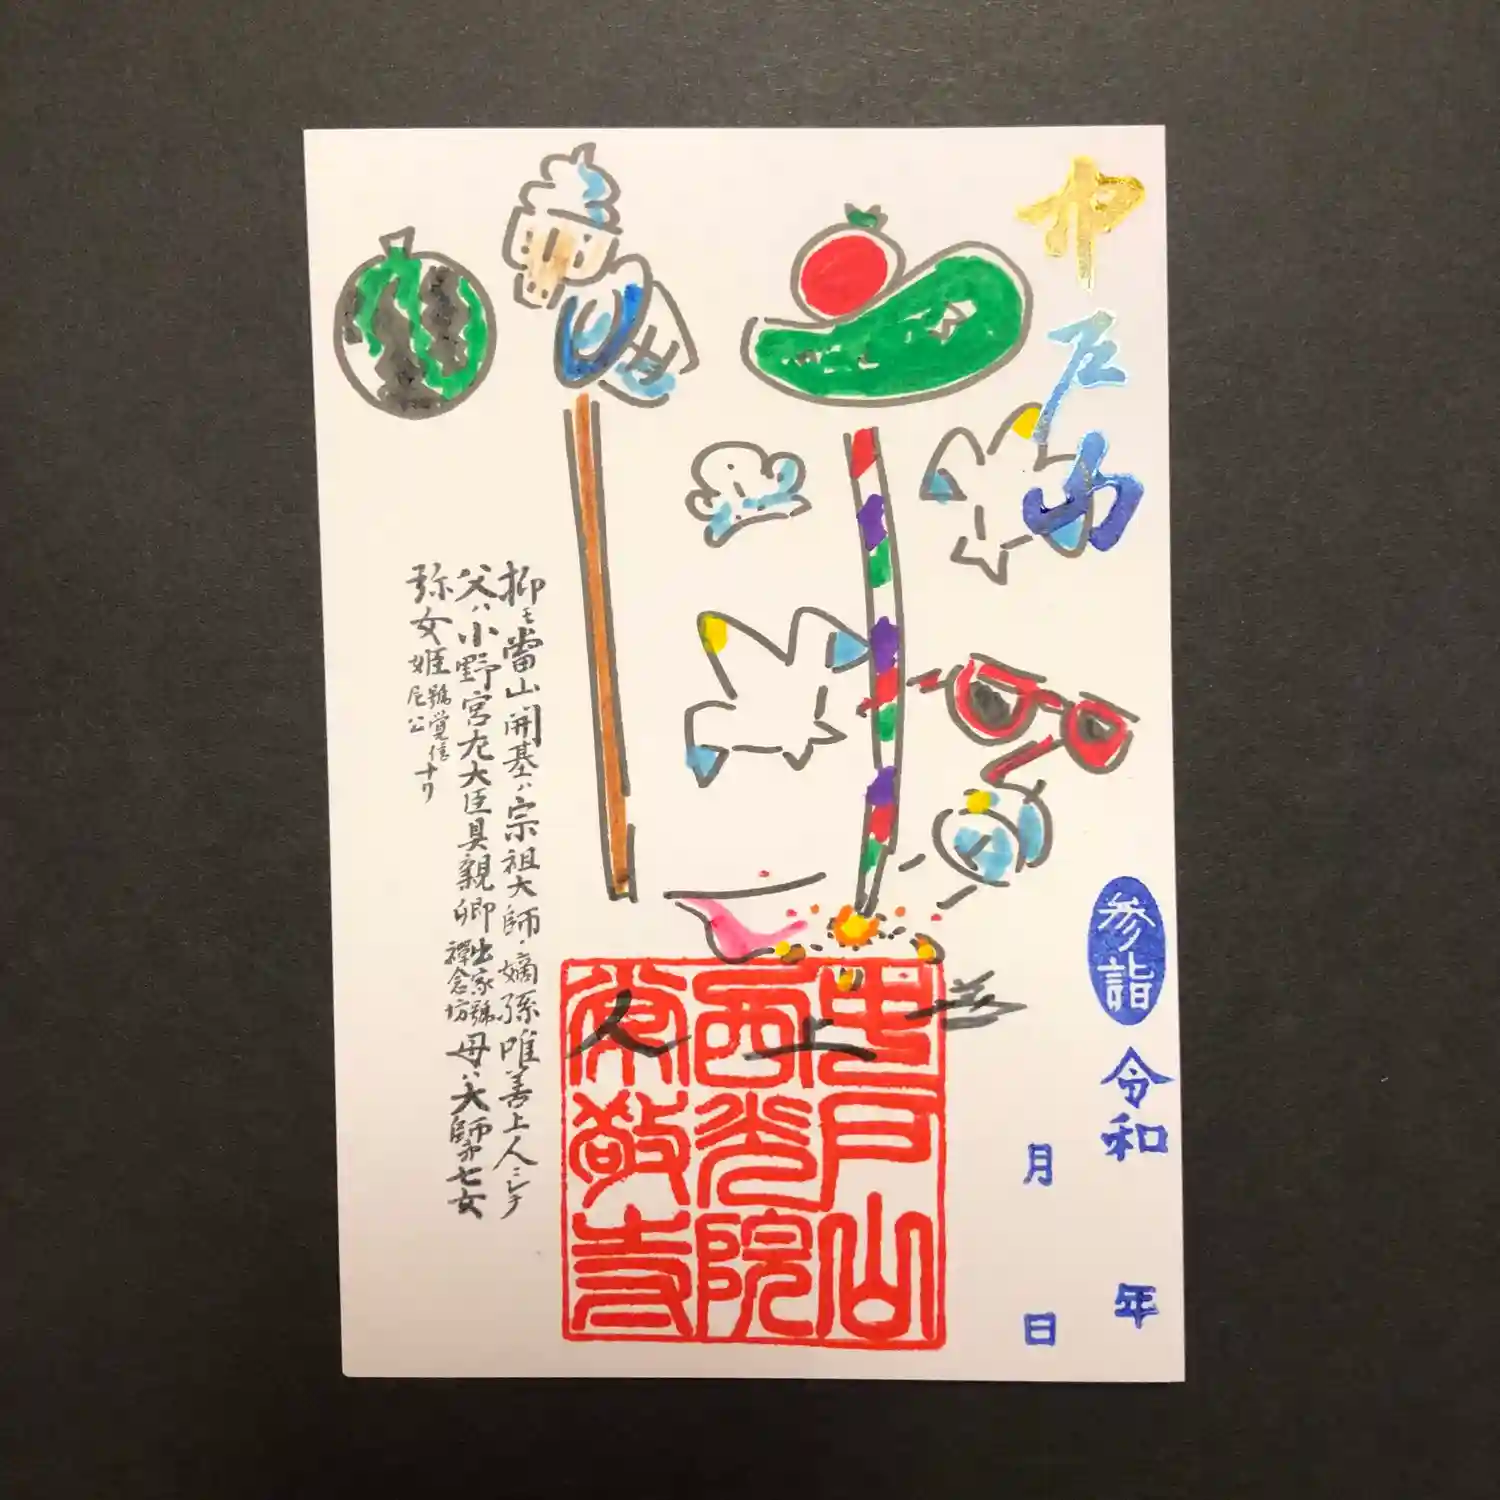 中戸山
参詣
令和 年
月 日
中戸山
西光院
常敬寺
上人
抑モ當山開基ハ宗祖大師ノ嫡孫唯善上人ニシテ
父ハ小野宮左大臣具親卿出家號禪念坊母ハ大師第七女
弥女姫號覚信尼公ナリ